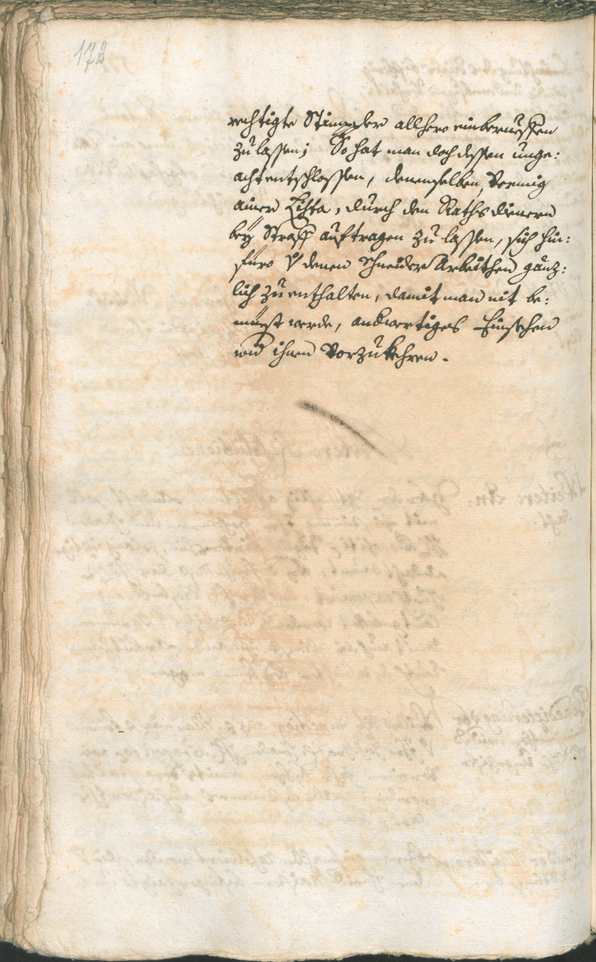 172
rechtigte Stimpler allhero einberueffen
zu lassen; So hat man doch dessen unge:
acht entschlossen, denenselben, Vermig
ainer Lista, durch den Raths dienern
bey Straff auftragen zu lassen, sich hin:
füro denen Schneider Arbeithen gänz:
lich zu enthalten, damit man nit be:
miesst werde, andwertiges Einsehen
wid ihnen Vorzukehren.